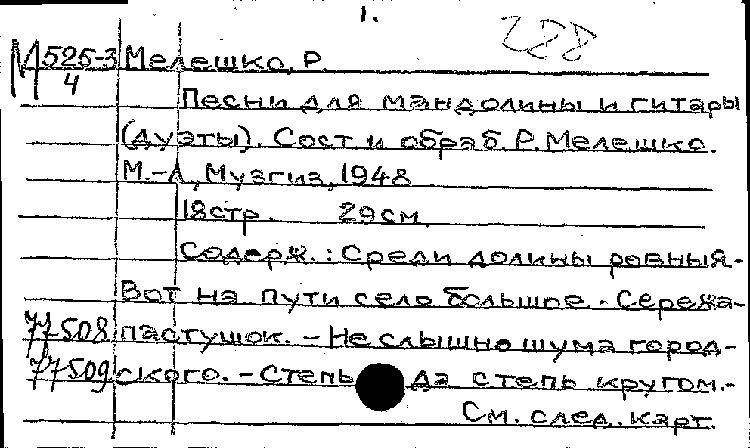 1.
288
М 525-3 Мелешко, Р.
4
Песни для мандолины и гитары
(дуэты). Сост и обраб. Р. Мелешко.
М.-Л, Музгиз, 1948
18стр. 29см.
Содерж.: Среди долины ровныя.-
Вот на пути село большое. - Сережа-
77508 пастушок. - Не слышно шума город-
77509 ского. - Степь да степь кругом.-
См. след. карт.